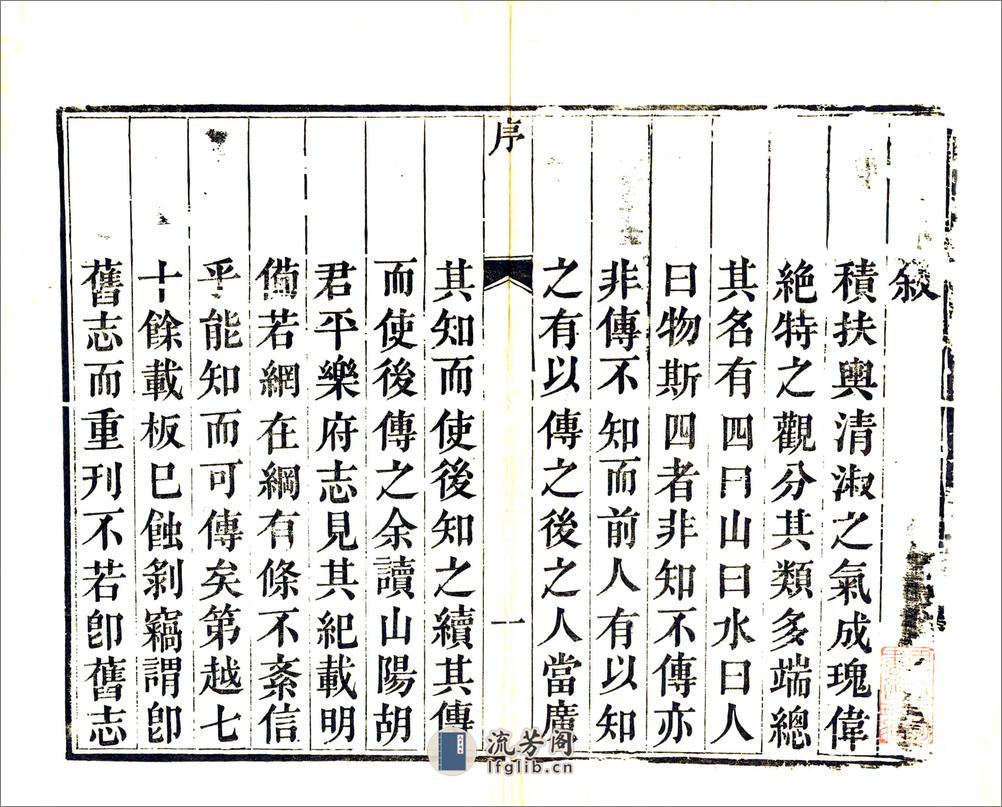 叙
積扶輿清淑之氣成瑰偉
絕特之觀分其類多端總
其名有四曰山曰水曰人
曰物斯四者非知不傳亦
非傳不知而前人有以知
之有以傳之後之人當廣
序
一
其知而使後知之續其傳
而使後傳之余讀山陽胡
君平樂府志見其紀載明
備若網在綱有條不紊信
乎能知而可傳矣第越七
十餘載板已蝕剝竊謂卽
舊志而重刊不若卽舊志
流芳阁
lfglib.cn